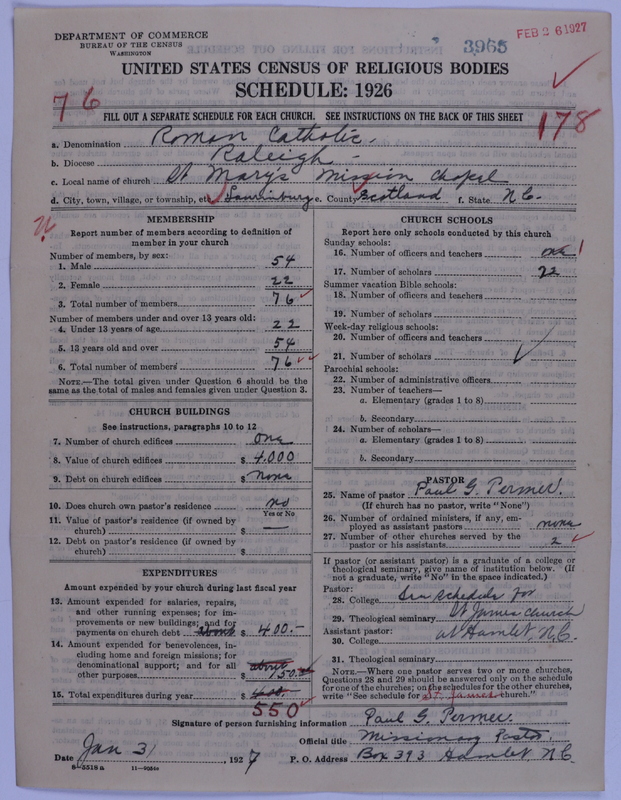 DEPARTMENT OF COMMERCE
BUREAU OF THE CENSUS
WASHINGTON
3965
FEB 26 1927
UNITED STATES CENSUS OF RELIGIOUS BODIES
SCHEDULE: 1926
76
178
FILL OUT A SEPARATE SCHEDULE FOR EACH CHURCH. SEE INSTRUCTIONS ON THE BACK OF THIS SHEET
a. Denomination Roman Catholic.
b. Diocese Raleigh
c. Local name of church St Mary's Mission Chapel
d. City, town, village, or township, etc. Laurinburg e. County Scotland f. State N.C.
MEMBERSHIP
Report number of members according to definition of
member in your church
Number of members, by sex:
1. Male 54
2. Female 22
3. Total number of members 76
Number of members under and over 13 years old:
4. Under 13 years of age 22
5. 13 years old and over 54
6. Total number of members 76
NOTE.—The total given under Question 6 should be the
same as the total of males and females given under Question 3.
CHURCH BUILDINGS
See instructions, paragraphs 10 to 12
7. Number of church edifices one
8. Value of church edifices $ 4.000
9. Debt on church edifices $ none
10. Does church own pastor's residence no
Yes or No
11. Value of pastor's residence (if owned by
church) $ —
12. Debt on pastor's residence (if owned by
church) $
EXPENDITURES
Amount expended by your church during last fiscal year
13. Amount expended for salaries, repairs,
and other running expenses; for im-
provements or new buildings; and for
payments on church debt about $ 400.-
14. Amount expended for benevolences, in-
cluding home and foreign missions; for
denominational support; and for all
about
other purposes $ 150.
15. Total expenditures during year $
550
CHURCH SCHOOLS
Report here only schools conducted by this church
Sunday schools:
16. Number of officers and teachers one 1
17. Number of scholars 22
Summer vacation Bible schools:
18. Number of officers and teachers
19. Number of scholars
Week-day religious schools:
20. Number of officers and teachers
21. Number of scholars
Parochial schools:
22. Number of administrative officers
23. Number of teachers—
a. Elementary (grades 1 to 8)
b. Secondary
24. Number of scholars—
a. Elementary (grades 1 to 8)
b. Secondary
PASTOR
25. Name of pastor Paul G. Termer.
(If church has no pastor, write "None")
26. Number of ordained ministers, if any, em-
ployed as assistant pastors none
27. Number of other churches served by the
pastor or his assistants 2
If pastor (or assistant pastor) is a graduate of a college or
theological seminary, give name of institution below. (If
not a graduate, write "No" in the space indicated.)
Pastor:
28. College See schedule for
29. Theological seminary St James church
Assistant pastor: at Hamlet, N.C.
30. College
31. Theological seminary
NOTE.—Where one pastor serves two or more churches,
Questions 28 and 29 should be answered only on the schedule
for one of the churches; on the schedules for the other churches,
write "See schedule for St. James church."
Signature of person furnishing information Paul G. Termer.
Official title Missionary Pastor.
Date Jan 31 1927 P. O. Address Box 393 Hamlet N.C.
6—5518a 11—9054a